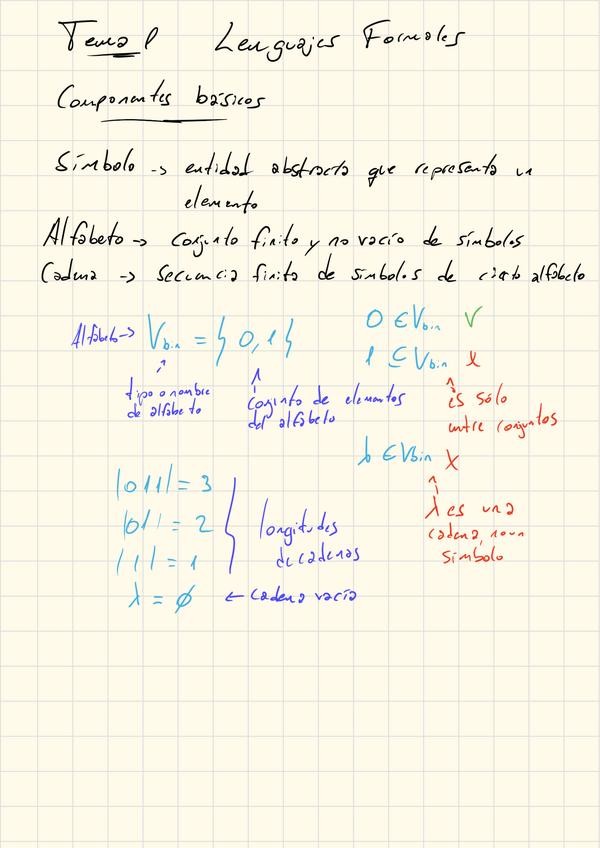 Tema 1 Lenguajes Formales
Componentes básicos
Símbolo -> entidad abstracta que representa un
elemento
Alfabeto -> conjunto finito y no vacío de símbolos
Cadena -> secuencia finita de símbolos de cierto alfabeto
Alfabeto -> Vbin = { 0, 1 }
tipo o nombre
de alfabeto
conjunto de elementos
del alfabeto
0 ∈ Vbin V
1 ⊆ Vbin X
es sólo
entre conjuntos
λ ∈ Vbin X
λ es una
cadena, no un
símbolo
|011| = 3
|01| = 2
|1| = 1
longitudes
de cadenas
λ = ∅ ← cadena vacía